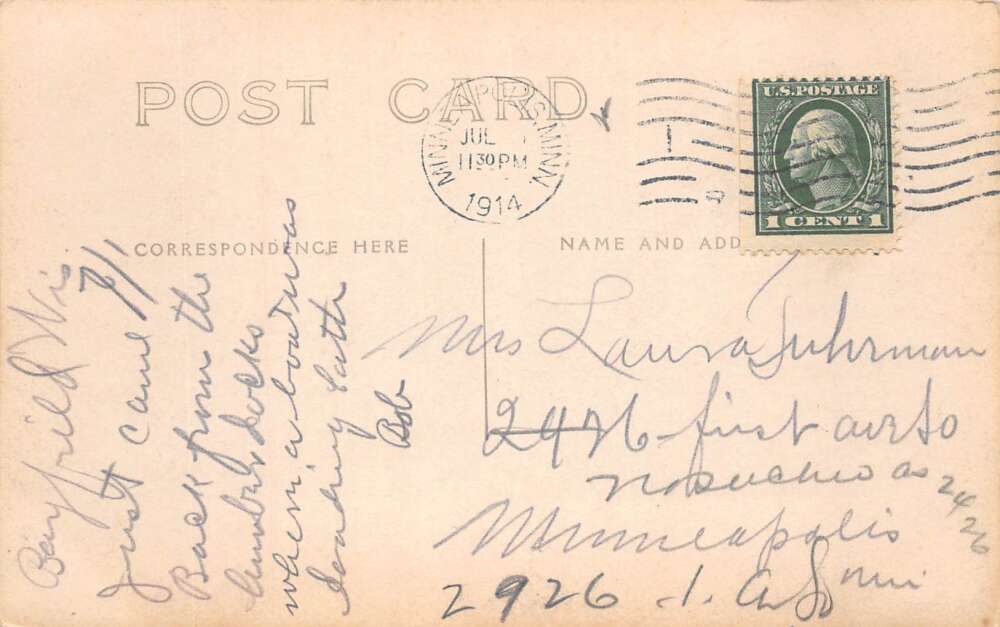 POST CARD
MINNEAPOLIS, MINN.
JUL 1
11 30 PM
1914
U.S. POSTAGE
1 CENT 1
CORRESPONDENCE HERE
NAME AND ADD
Bayfield Wis
7/1
Just came
Back from the
lumber docks
where a boat was
loading lath
Bob
Mrs Laura Fuhrman
2426 first ave So
no such no as 2426
Minneapolis
Minn
2926 - 1. Av So